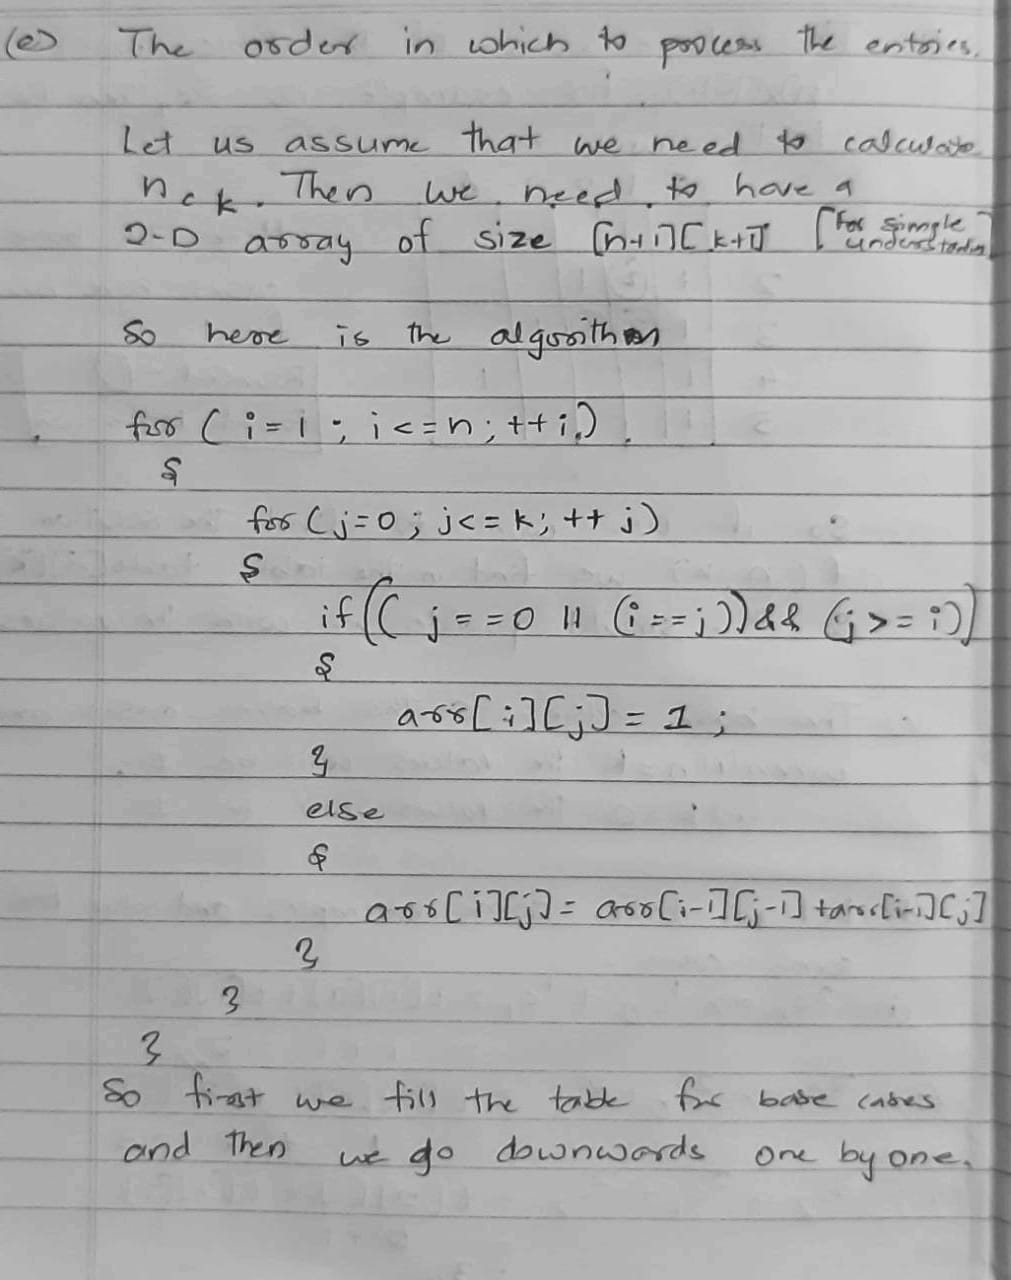 (e) The order in which to process the entries.
Let us assume that we need to calculate
nck. Then we need to have a
2-D array of size [n+1][k+1] [For simple understanding]
So here is the algorithm
for (i=1; i<=n; ++i)
{
for (j=0; j<=k; ++j)
{
if((j==0 || (i==j)) && (j>=i))
{
arr[i][j] = 1;
}
else
{
arr[i][j] = arr[i-1][j-1] + arr[i-1][j]
}
}
}
So first we fill the table for base cases
and then we go downwards one by one.